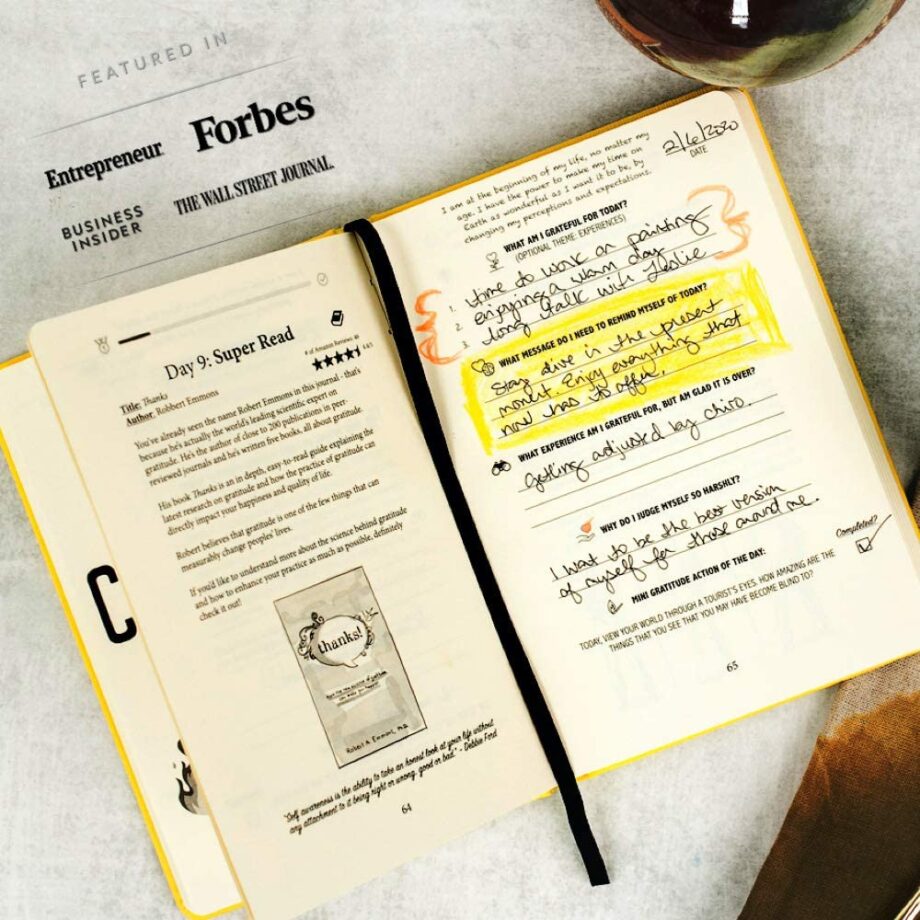 FEATURED IN
Entrepreneur
Forbes
BUSINESS
INSIDER
THE WALL STREET JOURNAL.
Day 9: Super Read
# of Amazon Reviews
Title: Thanks
Author: Robbert Emmons
You've already seen the name Robert Emmons in this journal - that's
because he's actually the world's leading scientific expert on
gratitude. He's the author of close to 200 publications in peer-
reviewed journals and he's written five books, all about gratitude.
His book Thanks is an in depth, easy-to-read guide explaining the
latest research on gratitude and how the practice of gratitude can
directly impact your happiness and quality of life.
Robert believes that gratitude is one of the few things that can
measurably change peoples' lives.
If you'd like to understand more about the science behind gratitude
and how to enhance your practice as much as possible, definitely
check it out!
thanks!
Robert A. Emmons, Ph.D.
"Self awareness is the ability to take an honest look at your life without
any attachment to it being right or wrong, good or bad." - Debbie Ford
64
C
I am at the beginning of my life, no matter my
age. I have the power to make my time on
Earth as wonderful as I want it to be, by
changing my perceptions and expectations.
2/6/2020
DATE
WHAT AM I GRATEFUL FOR TODAY?
(OPTIONAL THEME: EXPERIENCES)
1. time to work on painting
2. enjoying a warm day
3. long talk with Leslie
WHAT MESSAGE DO I NEED TO REMIND MYSELF OF TODAY?
Stay alive in the present
moment. Enjoy everything that
now has to offer.
WHAT EXPERIENCE AM I GRATEFUL FOR, BUT AM GLAD IT IS OVER?
Getting adjusted by chiro.
WHY DO I JUDGE MYSELF SO HARSHLY?
I want to be the best version
of myself for those around me.
MINI GRATITUDE ACTION OF THE DAY:
Completed?
TODAY, VIEW YOUR WORLD THROUGH A TOURIST'S EYES. HOW AMAZING ARE THE
THINGS THAT YOU SEE THAT YOU MAY HAVE BECOME BLIND TO?
65